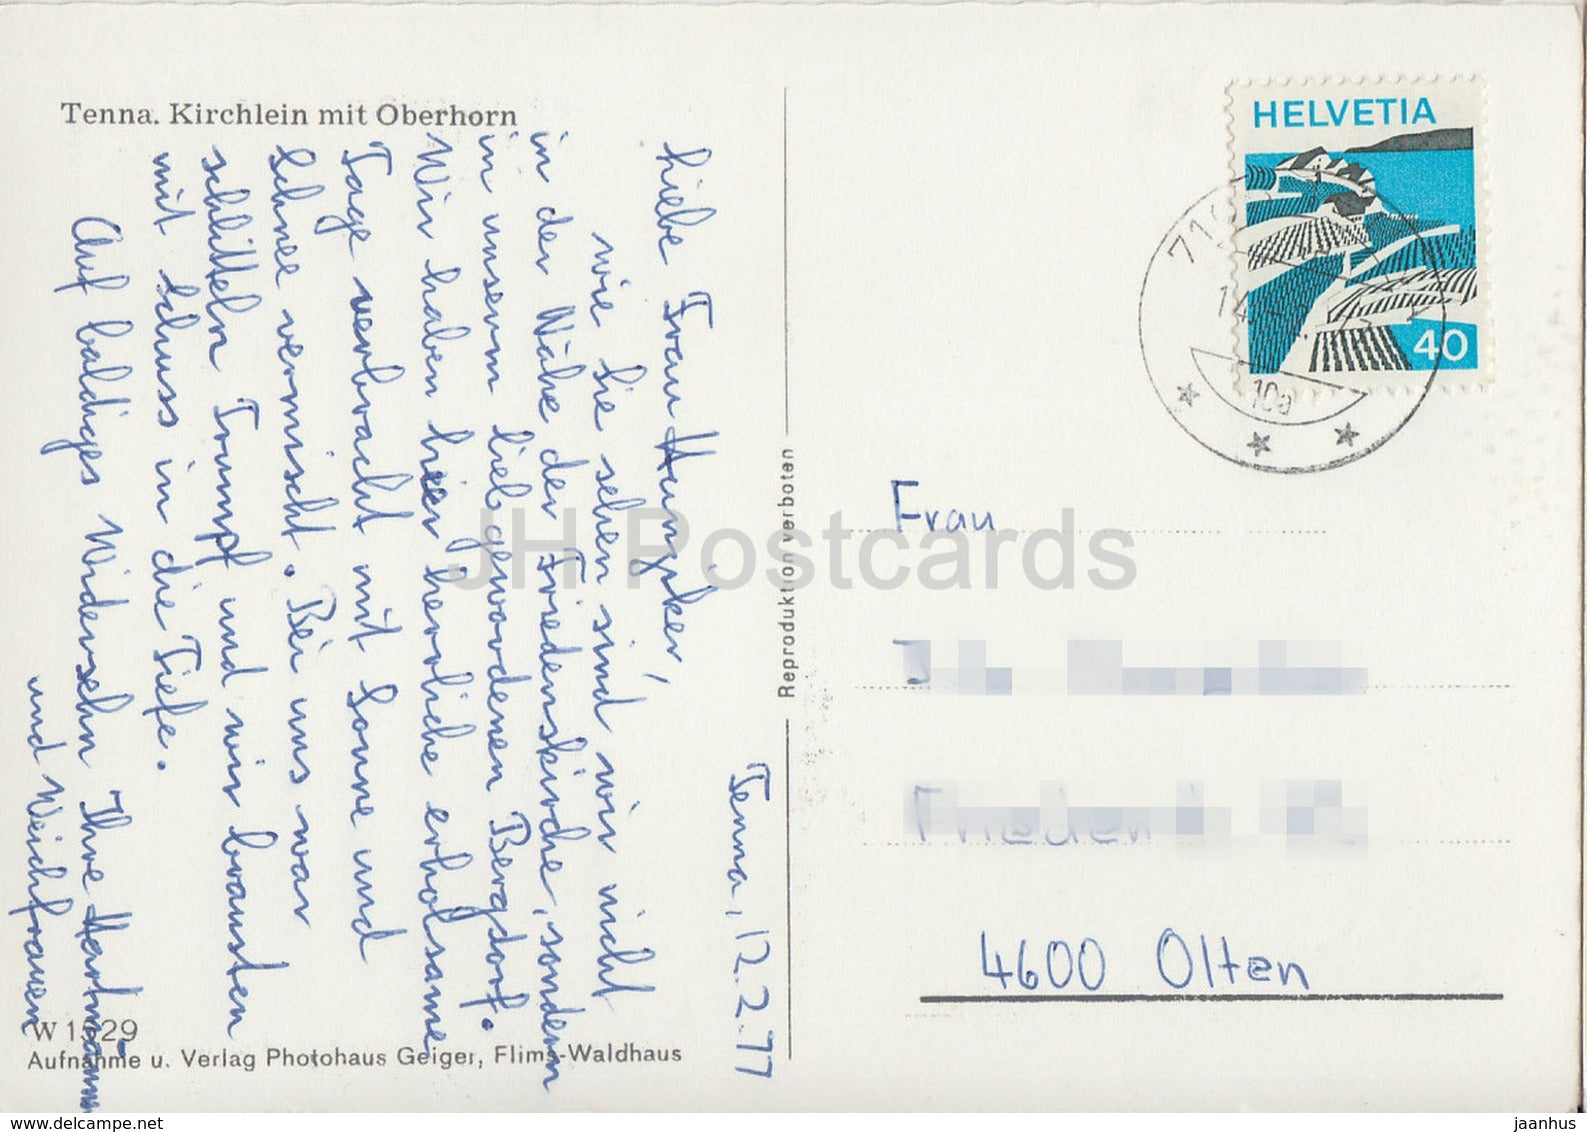 Tenna. Kirchlein mit Oberhorn
Tenna, 12.2.77
Liebe Frau Hungsker,
wie Sie sehen sind wir nicht
in der Nähe der Friedenskirche, sondern
in unserm liebgewordenen Bergdorf.
Wir haben hier herrliche erholsame
Tage verbracht mit Sonne und
Schnee vermischt. Bei uns war
schlitteln Trumpf und wir brausten
mit Schuss in die Tiefe.
Auf baldiges Widersehn Ihre Hartmanns
und Weichfrauen
W 1529
Aufnahme u. Verlag Photohaus Geiger, Flims-Waldhaus
Reproduktion verboten
HELVETIA
40
10a
Frau
4600 Olten
JH Postcards
delcampe.net
jaanhus